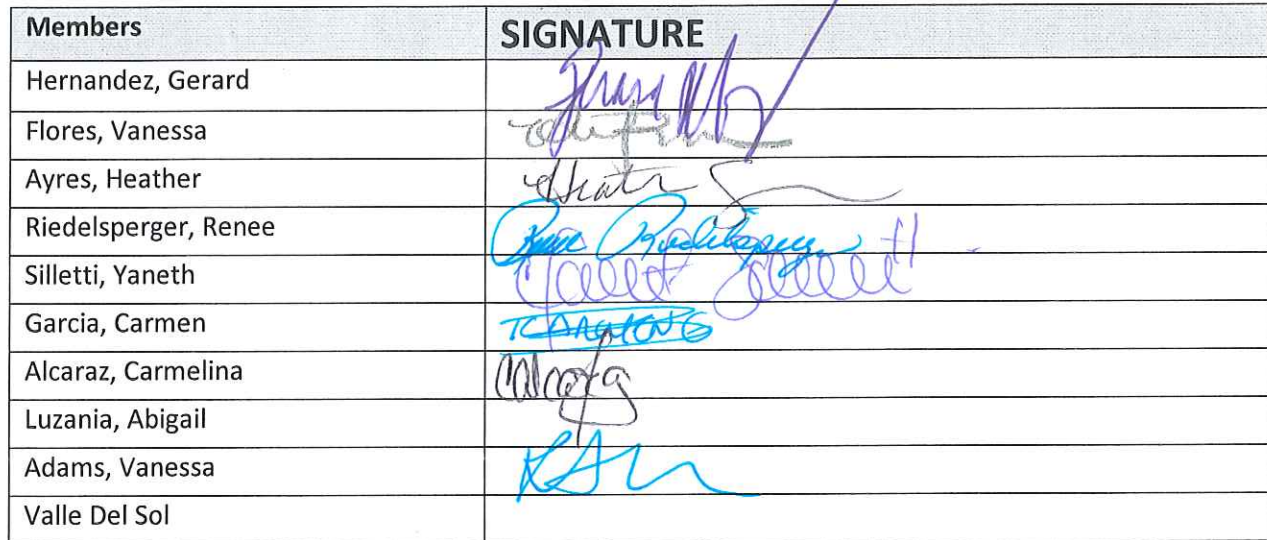 Members SIGNATURE
Hernandez, Gerard
Flores, Vanessa
Ayres, Heather Heath
Riedelsperger, Renee Renee Riedelsperger
Silletti, Yaneth Yaneth Silletti
Garcia, Carmen
Alcaraz, Carmelina
Luzania, Abigail
Adams, Vanessa
Valle Del Sol